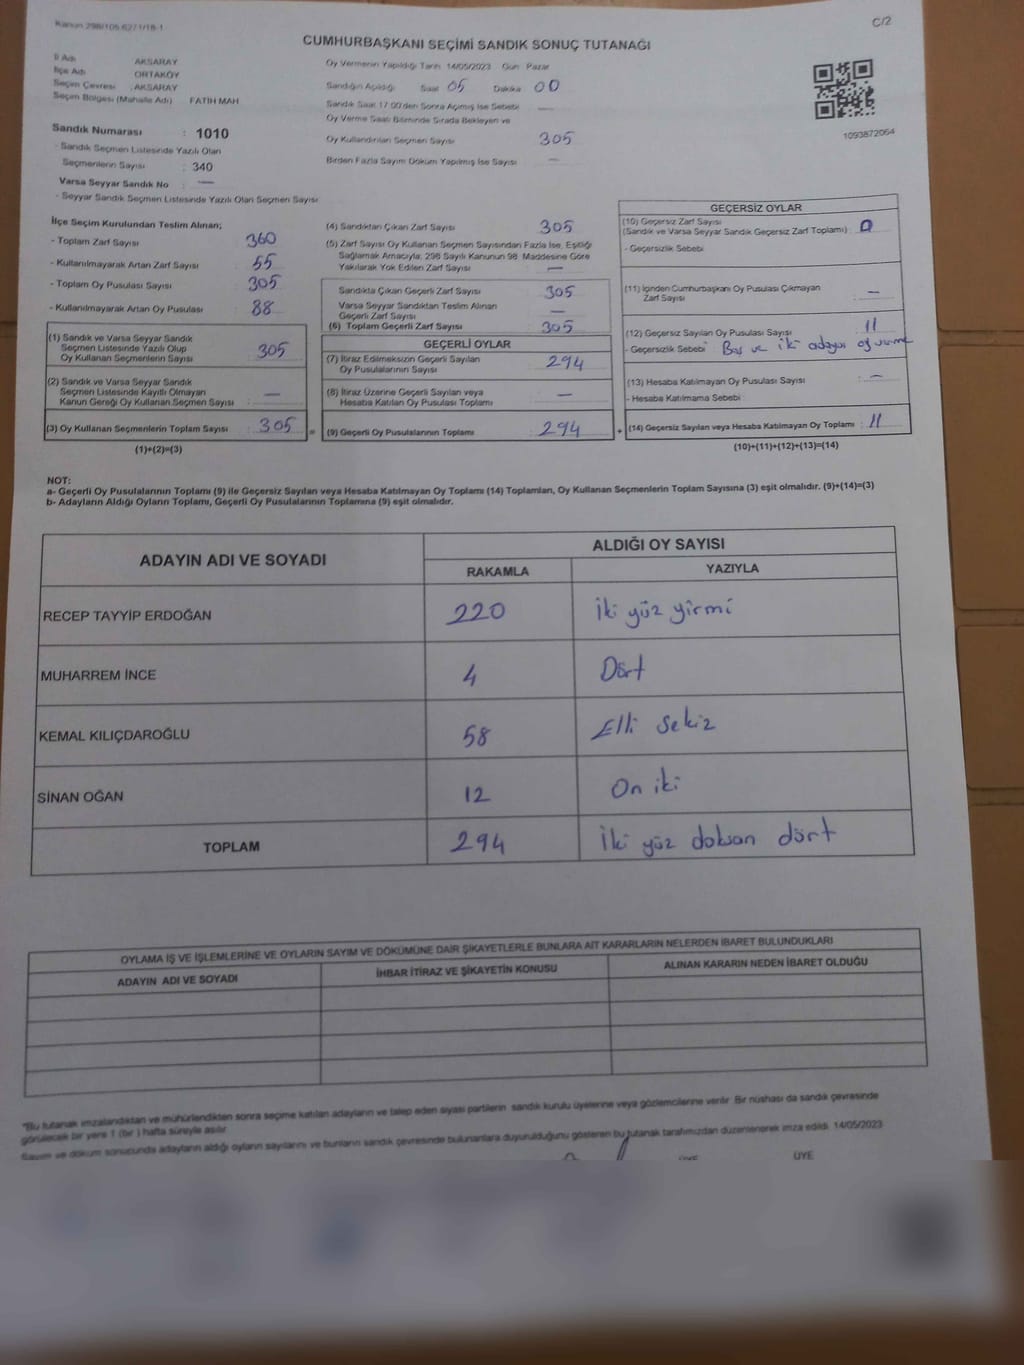 Kanun 298/105 6271/18-1
C/2
CUMHURBAŞKANI SEÇİMİ SANDIK SONUÇ TUTANAĞI
İl Adı AKSARAY
İlçe Adı ORTAKÖY
Seçim Çevresi : AKSARAY
Seçim Bölgesi (Mahalle Adı) FATİH MAH
Sandık Numarası : 1010
- Sandık Seçmen Listesinde Yazılı Olan
Seçmenlerin Sayısı : 340
Varsa Seyyar Sandık No : —
- Seyyar Sandık Seçmen Listesinde Yazılı Olan Seçmen Sayısı
Oy Vermenin Yapıldığı Tarih 14/05/2023 Gün Pazar
Sandığın Açıldığı Saat 05 Dakika 00
Sandık Saat 17:00'den Sonra Açılmış İse Sebebi —
Oy Verme Saati Bitiminde Sırada Bekleyen ve
Oy Kullandırılan Seçmen Sayısı 305
Birden Fazla Sayım Döküm Yapılmış İse Sayısı —
1093872064
İlçe Seçim Kurulundan Teslim Alınan;
- Toplam Zarf Sayısı 360
- Kullanılmayarak Artan Zarf Sayısı 55
- Toplam Oy Pusulası Sayısı 305
- Kullanılmayarak Artan Oy Pusulası 88
(1) Sandık ve Varsa Seyyar Sandık
Seçmen Listesinde Yazılı Olup
Oy Kullanan Seçmenlerin Sayısı 305
(2) Sandık ve Varsa Seyyar Sandık
Seçmen Listesinde Kayıtlı Olmayan
Kanun Gereği Oy Kullanan Seçmen Sayısı —
(3) Oy Kullanan Seçmenlerin Toplam Sayısı : 305 =
(1)+(2)=(3)
(4) Sandıktan Çıkan Zarf Sayısı 305
(5) Zarf Sayısı Oy Kullanan Seçmen Sayısından Fazla İse, Eşitliği
Sağlamak Amacıyla, 298 Sayılı Kanunun 98. Maddesine Göre
Yakılarak Yok Edilen Zarf Sayısı —
Sandıkta Çıkan Geçerli Zarf Sayısı 305
Varsa Seyyar Sandıktan Teslim Alınan
Geçerli Zarf Sayısı —
(6) Toplam Geçerli Zarf Sayısı 305
GEÇERLİ OYLAR
(7) İtiraz Edilmeksizin Geçerli Sayılan
Oy Pusulalarının Sayısı 294
(8) İtiraz Üzerine Geçerli Sayılan veya
Hesaba Katılan Oy Pusulası Toplamı —
(9) Geçerli Oy Pusulalarının Toplamı 294 +
GEÇERSİZ OYLAR
(10) Geçersiz Zarf Sayısı
(Sandık ve Varsa Seyyar Sandık Geçersiz Zarf Toplamı) : 0
- Geçersizlik Sebebi
(11) İçinden Cumhurbaşkanı Oy Pusulası Çıkmayan
Zarf Sayısı : —
(12) Geçersiz Sayılan Oy Pusulası Sayısı : 11
- Geçersizlik Sebebi Boş ve iki adaya oy verme
(13) Hesaba Katılmayan Oy Pusulası Sayısı : —
- Hesaba Katılmama Sebebi
(14) Geçersiz Sayılan veya Hesaba Katılmayan Oy Toplamı : 11
(10)+(11)+(12)+(13)=(14)
NOT:
a- Geçerli Oy Pusulalarının Toplamı (9) ile Geçersiz Sayılan veya Hesaba Katılmayan Oy Toplamı (14) Toplamları, Oy Kullanan Seçmenlerin Toplam Sayısına (3) eşit olmalıdır. (9)+(14)=(3)
b- Adayların Aldığı Oyların Toplamı, Geçerli Oy Pusulalarının Toplamına (9) eşit olmalıdır.
ADAYIN ADI VE SOYADI
ALDIĞI OY SAYISI
RAKAMLA YAZIYLA
RECEP TAYYİP ERDOĞAN 220 İki yüz yirmi
MUHARREM İNCE 4 Dört
KEMAL KILIÇDAROĞLU 58 Elli sekiz
SİNAN OĞAN 12 On iki
TOPLAM 294 İki yüz doksan dört
OYLAMA İŞ VE İŞLEMLERİNE VE OYLARIN SAYIM VE DÖKÜMÜNE DAİR ŞİKAYETLERLE BUNLARA AİT KARARLARIN NELERDEN İBARET BULUNDUKLARI
ADAYIN ADI VE SOYADI İHBAR İTİRAZ VE ŞİKAYETİN KONUSU ALINAN KARARIN NEDEN İBARET OLDUĞU
"Bu tutanak imzalandıktan ve mühürlendikten sonra seçime katılan adayların ve talep eden siyasi partilerin sandık kurulu üyelerine veya gözlemcilerine verilir. Bir nüshası da sandık çevresinde
görülecek bir yere 1 (bir) hafta süreyle asılır.
Sayım ve döküm sonucunda adayların aldığı oyların sayılarını ve bunların sandık çevresinde bulunanlara duyurulduğunu gösteren bu tutanak tarafımızdan düzenlenerek imza edildi. 14/05/2023
ÜYE ÜYE